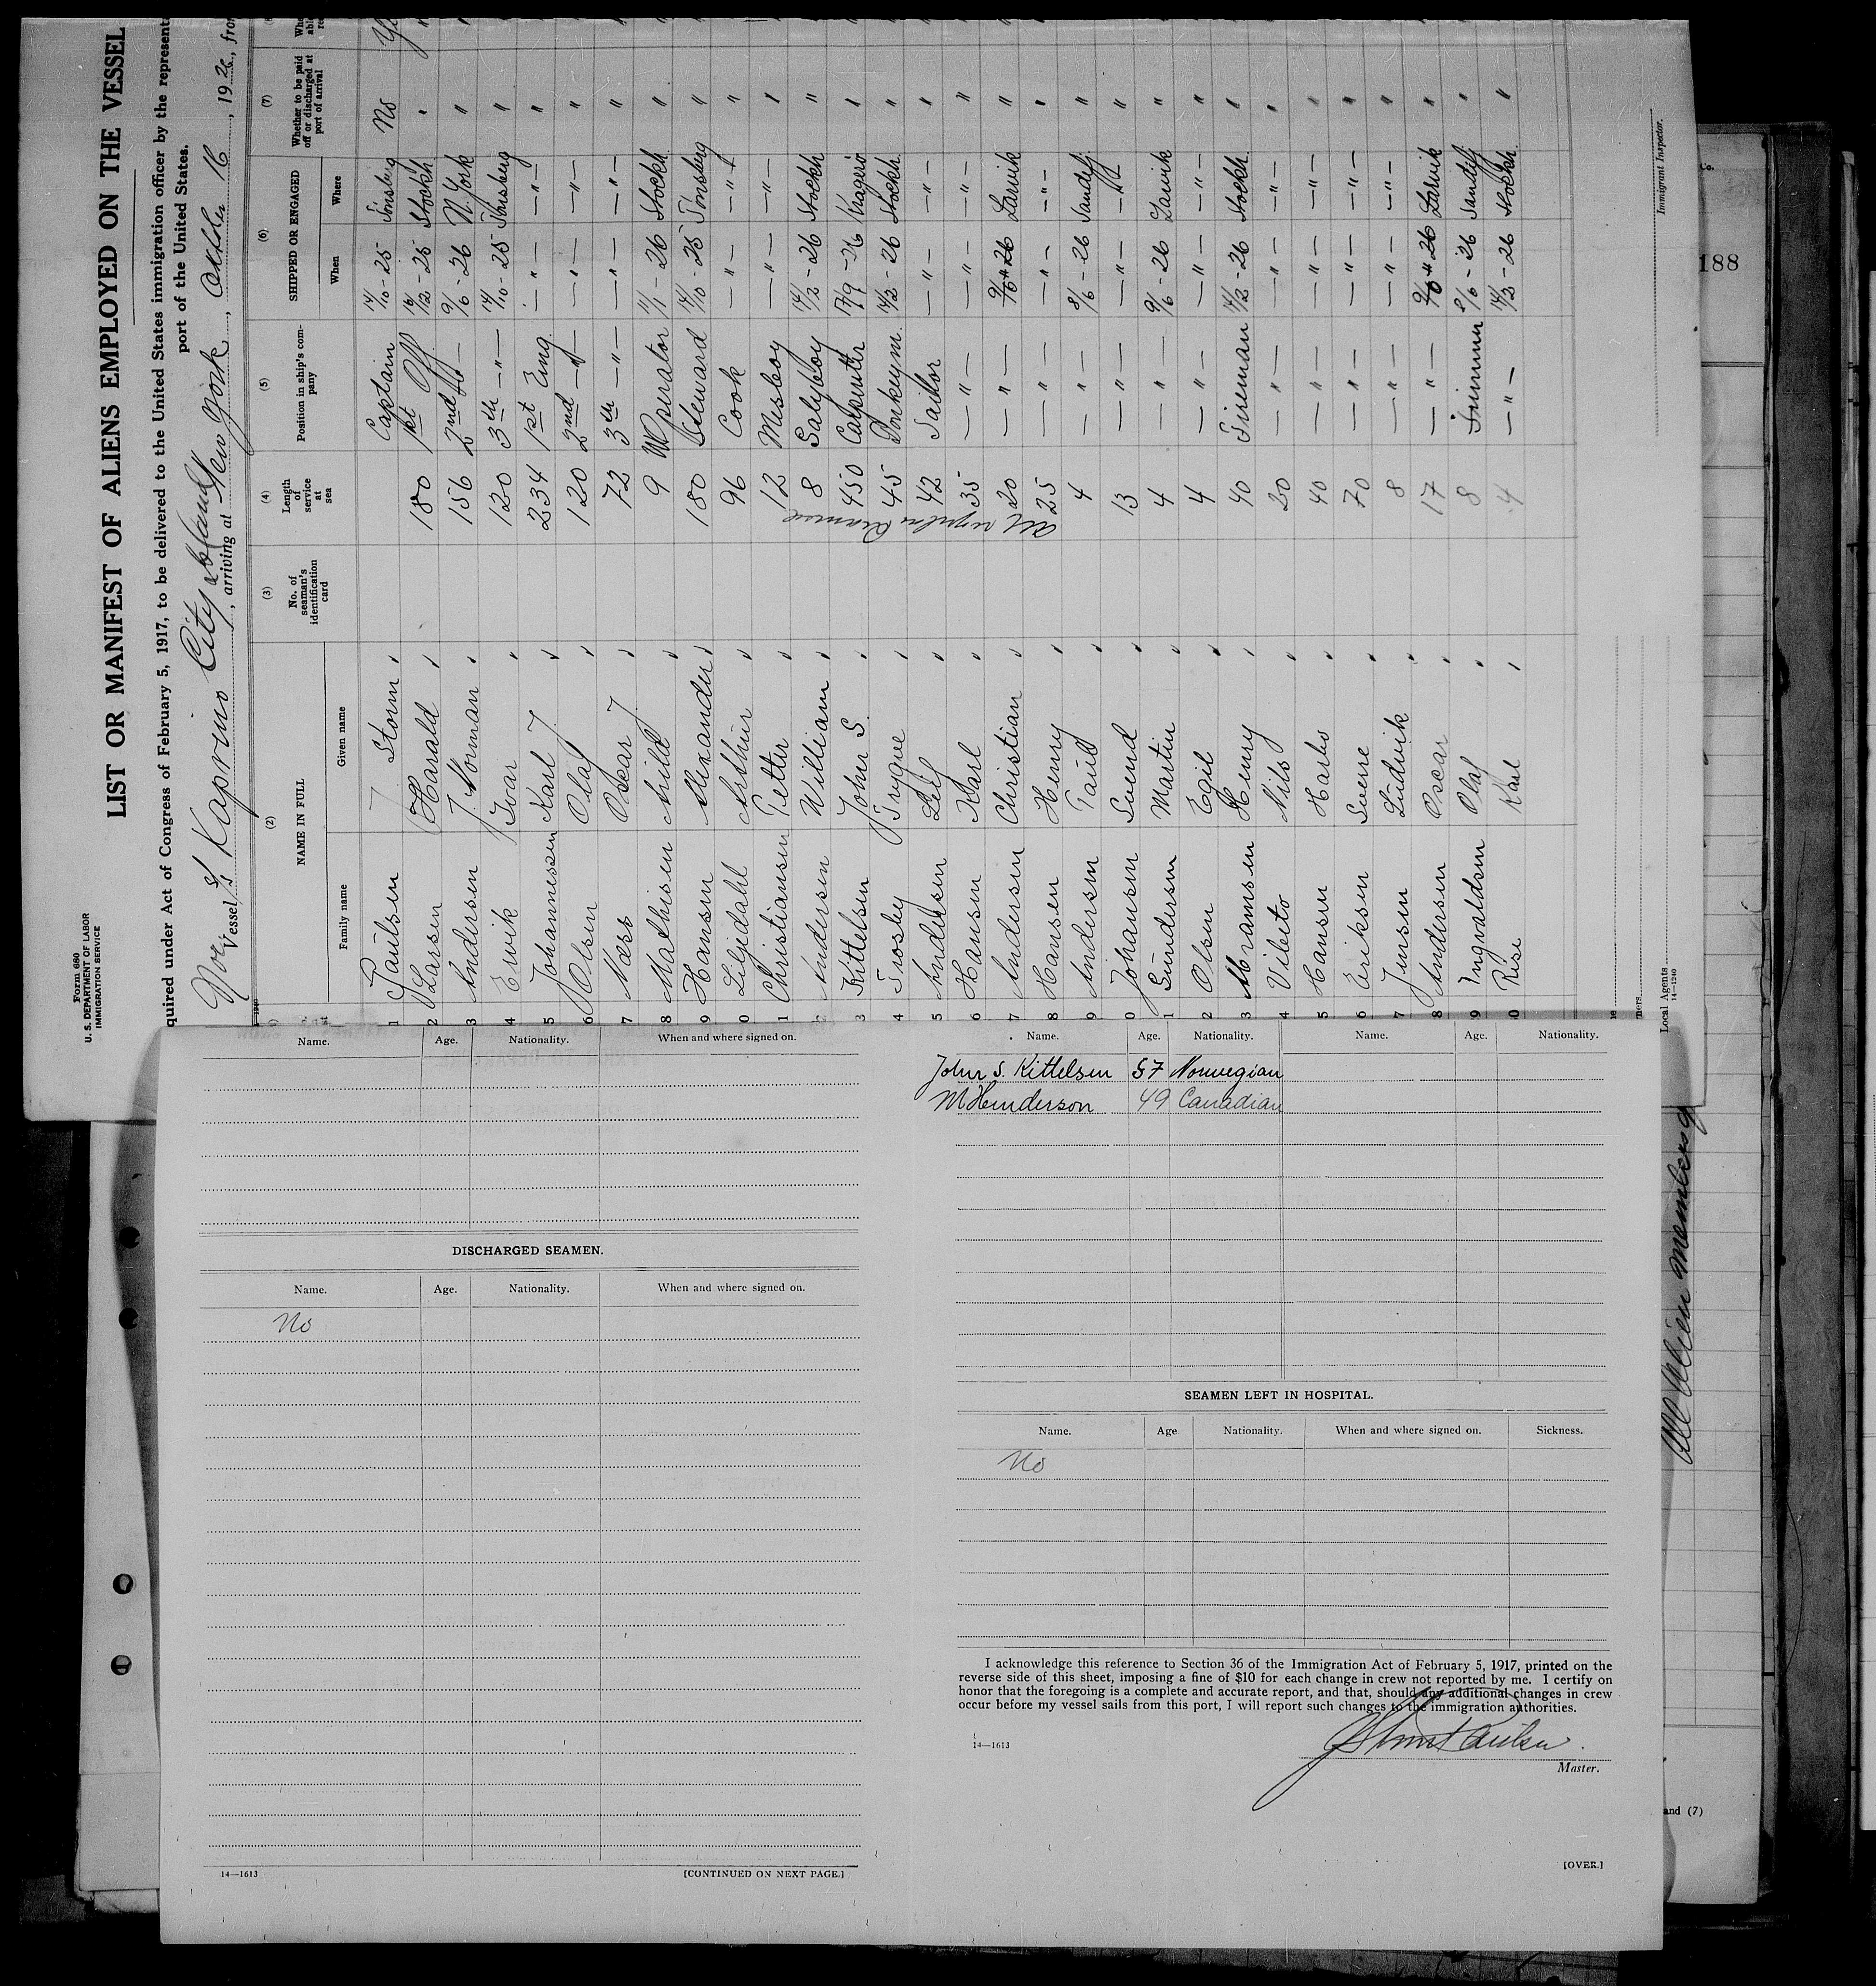 Form 680
U. S. DEPARTMENT OF LABOR
IMMIGRATION SERVICE
LIST OR MANIFEST OF ALIENS EMPLOYED ON THE VESSEL
quired under Act of Congress of February 5, 1917, to be delivered to the United States immigration officer by the represent
port of the United States.
Nor. Vessel S/S Kaprino City Island, arriving at New York, October 16, 1926, from
(2) (3) (4) (5) (6) (7)
NAME IN FULL No. of seaman's identification card Length of service at sea Position in ship's company SHIPPED OR ENGAGED Whether to be paid off or discharged at port of arrival
Family name Given name When Where
1 Paulsen J Storm Captain 14/10-25 Tönsberg No Ye
2 Larsen Harald 180 1st Off 16/12-25 Stockh "
3 Andersen J. Norman 156 2nd — 9/6-26 N. York "
4 Ervik Ivar 120 3th —"— 14/10-25 Tönsberg "
5 Johannessen Karl J 234 1st Eng —"— —"— "
6 Olsen Olaf J 120 2nd —"— —"— —"— "
7 Næss Oscar J 72 3th —"— —"— —"— "
8 Mathisen Arild 9 W Operator 11/1-26 Stockh "
9 Hansen Alexander 180 Steward 14/10-25 Tönsberg "
0 Liljedahl Arthur 96 Cook —"— —"— "
1 Christiansen Petter 12 Messboy —"— —"— "
2 Andersen William 8 Galleyboy 14/2-26 Stockh "
3 Kittelsen John S. 450 Carpenter 17/9-26 Kragerö "
4 Trosby Trygve 45 Donkeym. 14/2-26 Stockh "
5 Andersen Leif 42 Sailor —"— —"— "
6 Hansen Karl 35 —"— —"— —"— "
7 Andersen Christian 20 —"— 9/6-26 Larvik "
8 Hansen Henry 25 —"— —"— —"— "
9 Andersen Paul 4 —"— 8/6-26 Sandefj. "
0 Johansen Svend 13 —"— —"— —"— "
1 Gundersen Martin 4 —"— 9/6-26 Larvik "
2 Olsen Egil 4 —"— —"— —"— "
3 Abramsen Henry 40 Fireman 14/2-26 Stockh. "
4 Viberto Nils 20 —"— —"— —"— "
5 Hansen Harbo 40 —"— —"— —"— "
6 Eriksen Sverre 70 —"— —"— —"— "
7 Jensen Ludvik 8 —"— —"— —"— "
8 Andersen Oscar 17 —"— 9/6-26 Larvik "
9 Ingvaldsen Olaf 8 Trimmer 8/6-26 Sandefj. "
0 Rise Karl 4 —"— 14/2-26 Stockh. "
All regular seamen
Immigrant Inspector.
Local Agents
14—1240
Co.
188
All Alien members
and (7)
Name. Age. Nationality. When and where signed on.
DISCHARGED SEAMEN.
Name. Age. Nationality. When and where signed on.
No
14—1613 [CONTINUED ON NEXT PAGE.]
Name. Age. Nationality. Name. Age. Nationality.
John S. Kittelsen 57 Norwegian
M Henderson 49 Canadian
SEAMEN LEFT IN HOSPITAL.
Name. Age Nationality. When and where signed on. Sickness.
No
I acknowledge this reference to Section 36 of the Immigration Act of February 5, 1917, printed on the
reverse side of this sheet, imposing a fine of $10 for each change in crew not reported by me. I certify on
honor that the foregoing is a complete and accurate report, and that, should any additional changes in crew
occur before my vessel sails from this port, I will report such changes to the immigration authorities.
14—1613
J Storm Paulsen.
Master.
[OVER.]